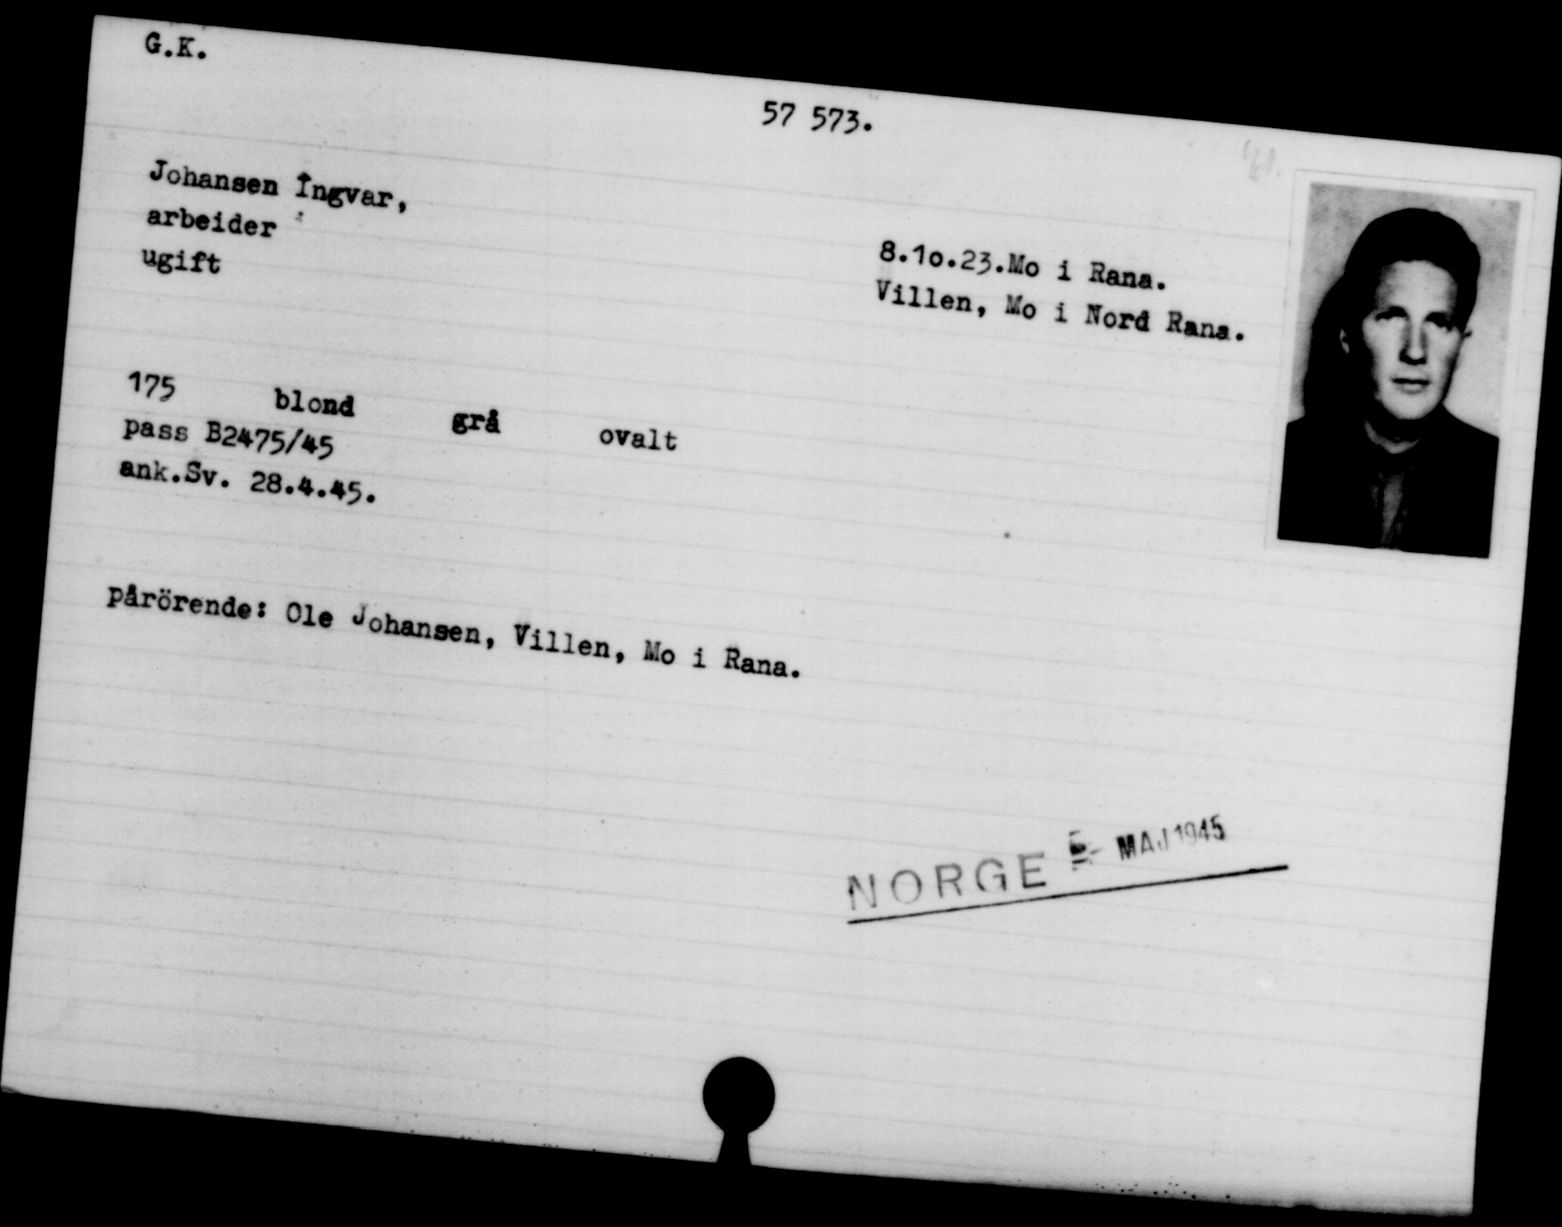 G.K.
57 573.
Johansen Ingvar,
arbeider
ugift
8.10.23.Mo i Rana.
Villen, Mo i Nord Rana.
175 blond grå ovalt
pass B2475/45
ank.Sv. 28.4.45.
pårörende: Ole Johansen, Villen, Mo i Rana.
NORGE MAJ 1945